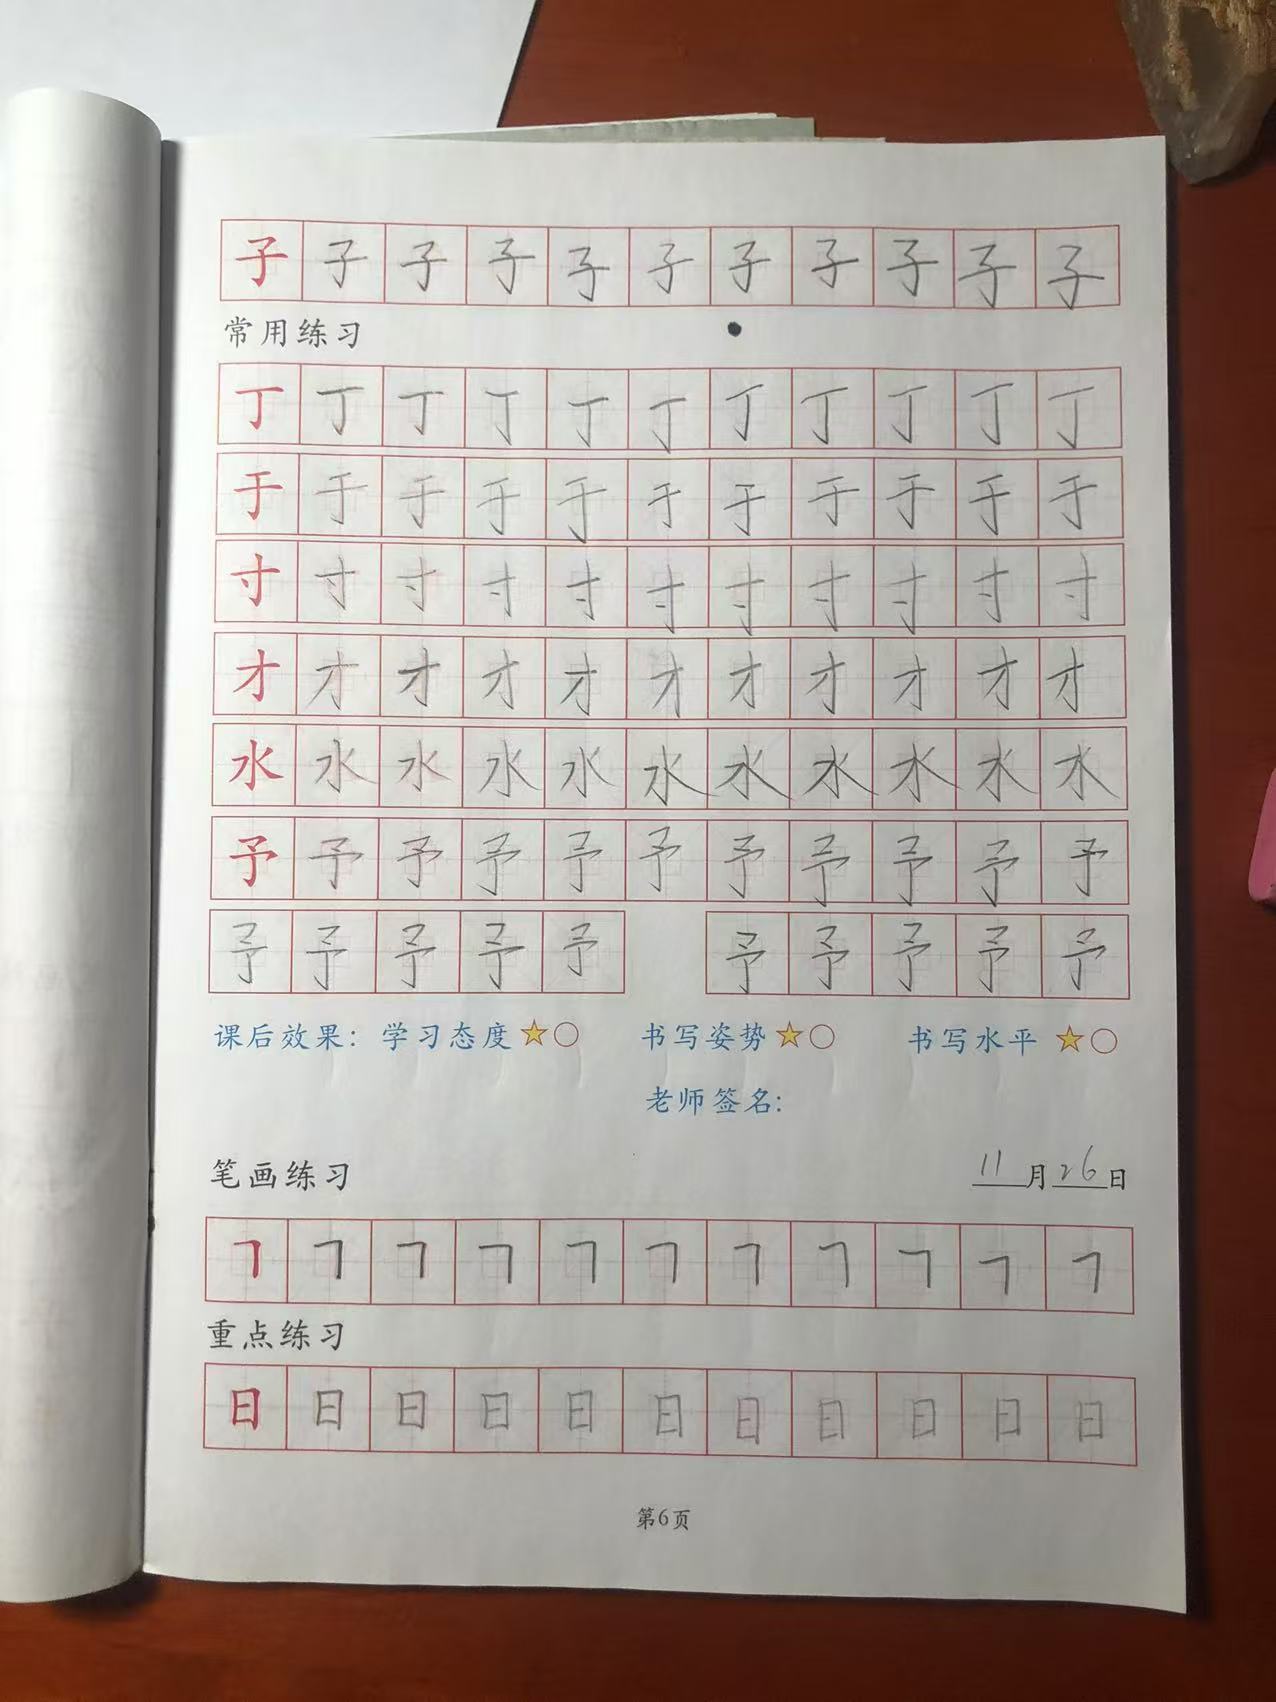 子子子子子子子子子子子
常用练习
丁丁丁丁丁丁丁丁丁丁丁
于于于于于于于于于于于
寸寸寸寸寸寸寸寸寸寸寸
才才才才才才才才才才才
水水水水水水水水水水水
予予予予予予予予予予予
予予予予予 予予予予予
课后效果：学习态度 书写姿势 书写水平
老师签名:
笔画练习 11月26日
㇕㇕㇕㇕㇕㇕㇕㇕㇕㇕㇕
重点练习
日日日日日日日日日日日
第6页